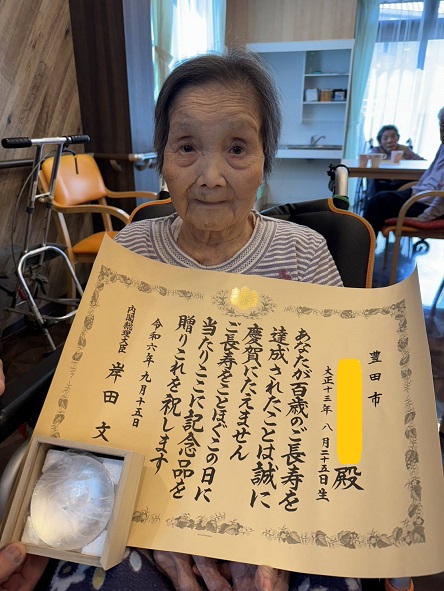 豊田市
殿
大正十三年 八月二十五日生
あなたが百歳のご長寿を
達成されたことは誠に
慶賀にたえません
ご長寿をことほぐこの日に
当たりここに記念品を
贈りこれを祝します
令和六年九月十五日
内閣総理大臣 岸田文